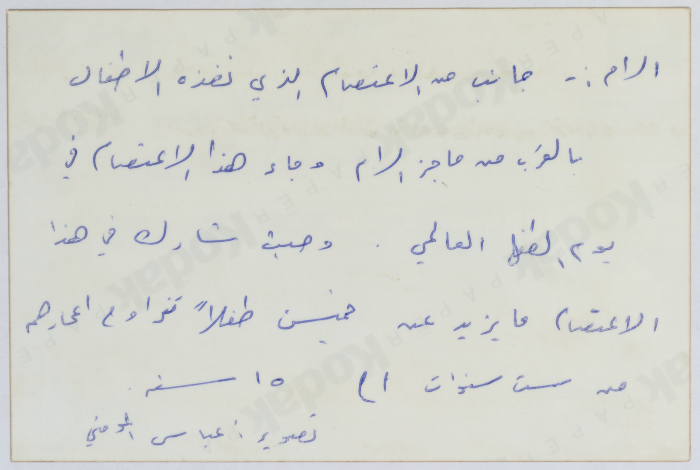 الرام :- جانب من الاعتصام الذي نفذه الاطفال
بالقرب من حاجز الرام وجاء هذا الاعتصام في
يوم الطفل العالمي . وحيث شارك في هذا
الاعتصام ما يزيد عن خمسين طفلاً تتراوح اعمارهم
من ست سنوات الى ١٥ سنه .
تصوير : عباس المومني
Kodak
Kodak
Kodak
Kodak
Kodak